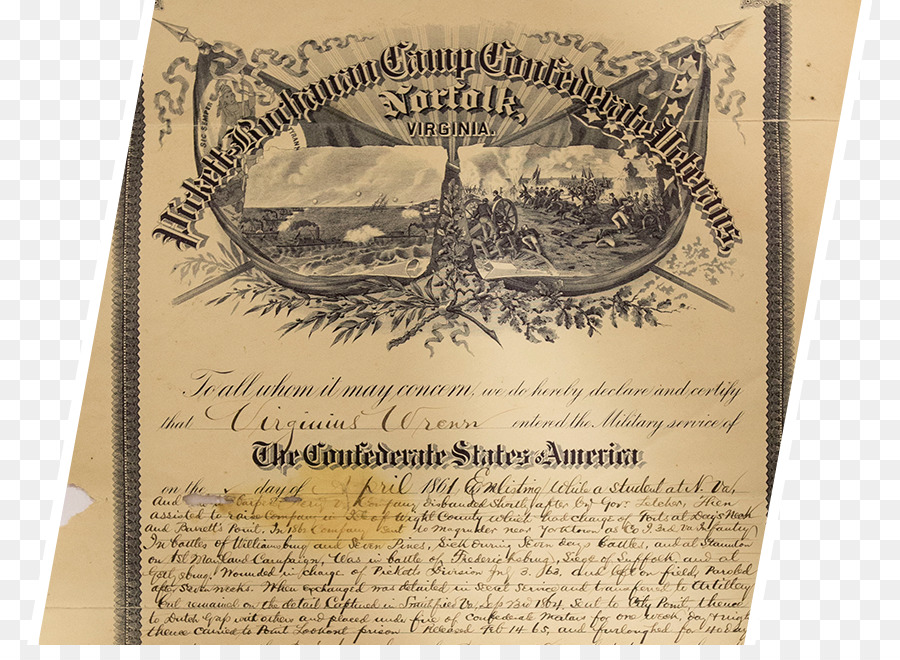 Pickett-Buchanan Camp Confederate Veterans,
Norfolk,
VIRGINIA.
SIC SEMPER
To all whom it may concern, we do hereby declare and certify
that Virginius Wrenn entered the Military service of
The Confederate States of America
on the day of April 1861 Enlisting While a student at N. Va,
And Company Disbanded Shortly after by Gov: Letcher, Then
assisted to raise Company I Isle of Wight County which had charge of Forts at Day's Neck
and Burrell's Point. In 1862 Company Sent to Magruder near Yorktown, as Co. I 3rd. Va Infantry
In battles of Williamsburg and Seven Pines, Sick During Seven day's battles, and at Staunton
on 1st Maryland Campaign, Was in battle of Fredericksburg, Siege of Suffolk and at
Gettysburg. Wounded in charge of Picket's Division July 3. /63. And left on field, Paroled
after Seven weeks. When exchanged was detailed in Secret Service and transferred to Artillery
but remained on the detail Captured in Smithfield Va, 1864, Sent to City Point, thence
to Dutch Gap with others and placed under fire of Confederate Mortars for one week, day & night
thence carried to Point Lookout prison Released Feb 14 65, and furloughed for 40 days